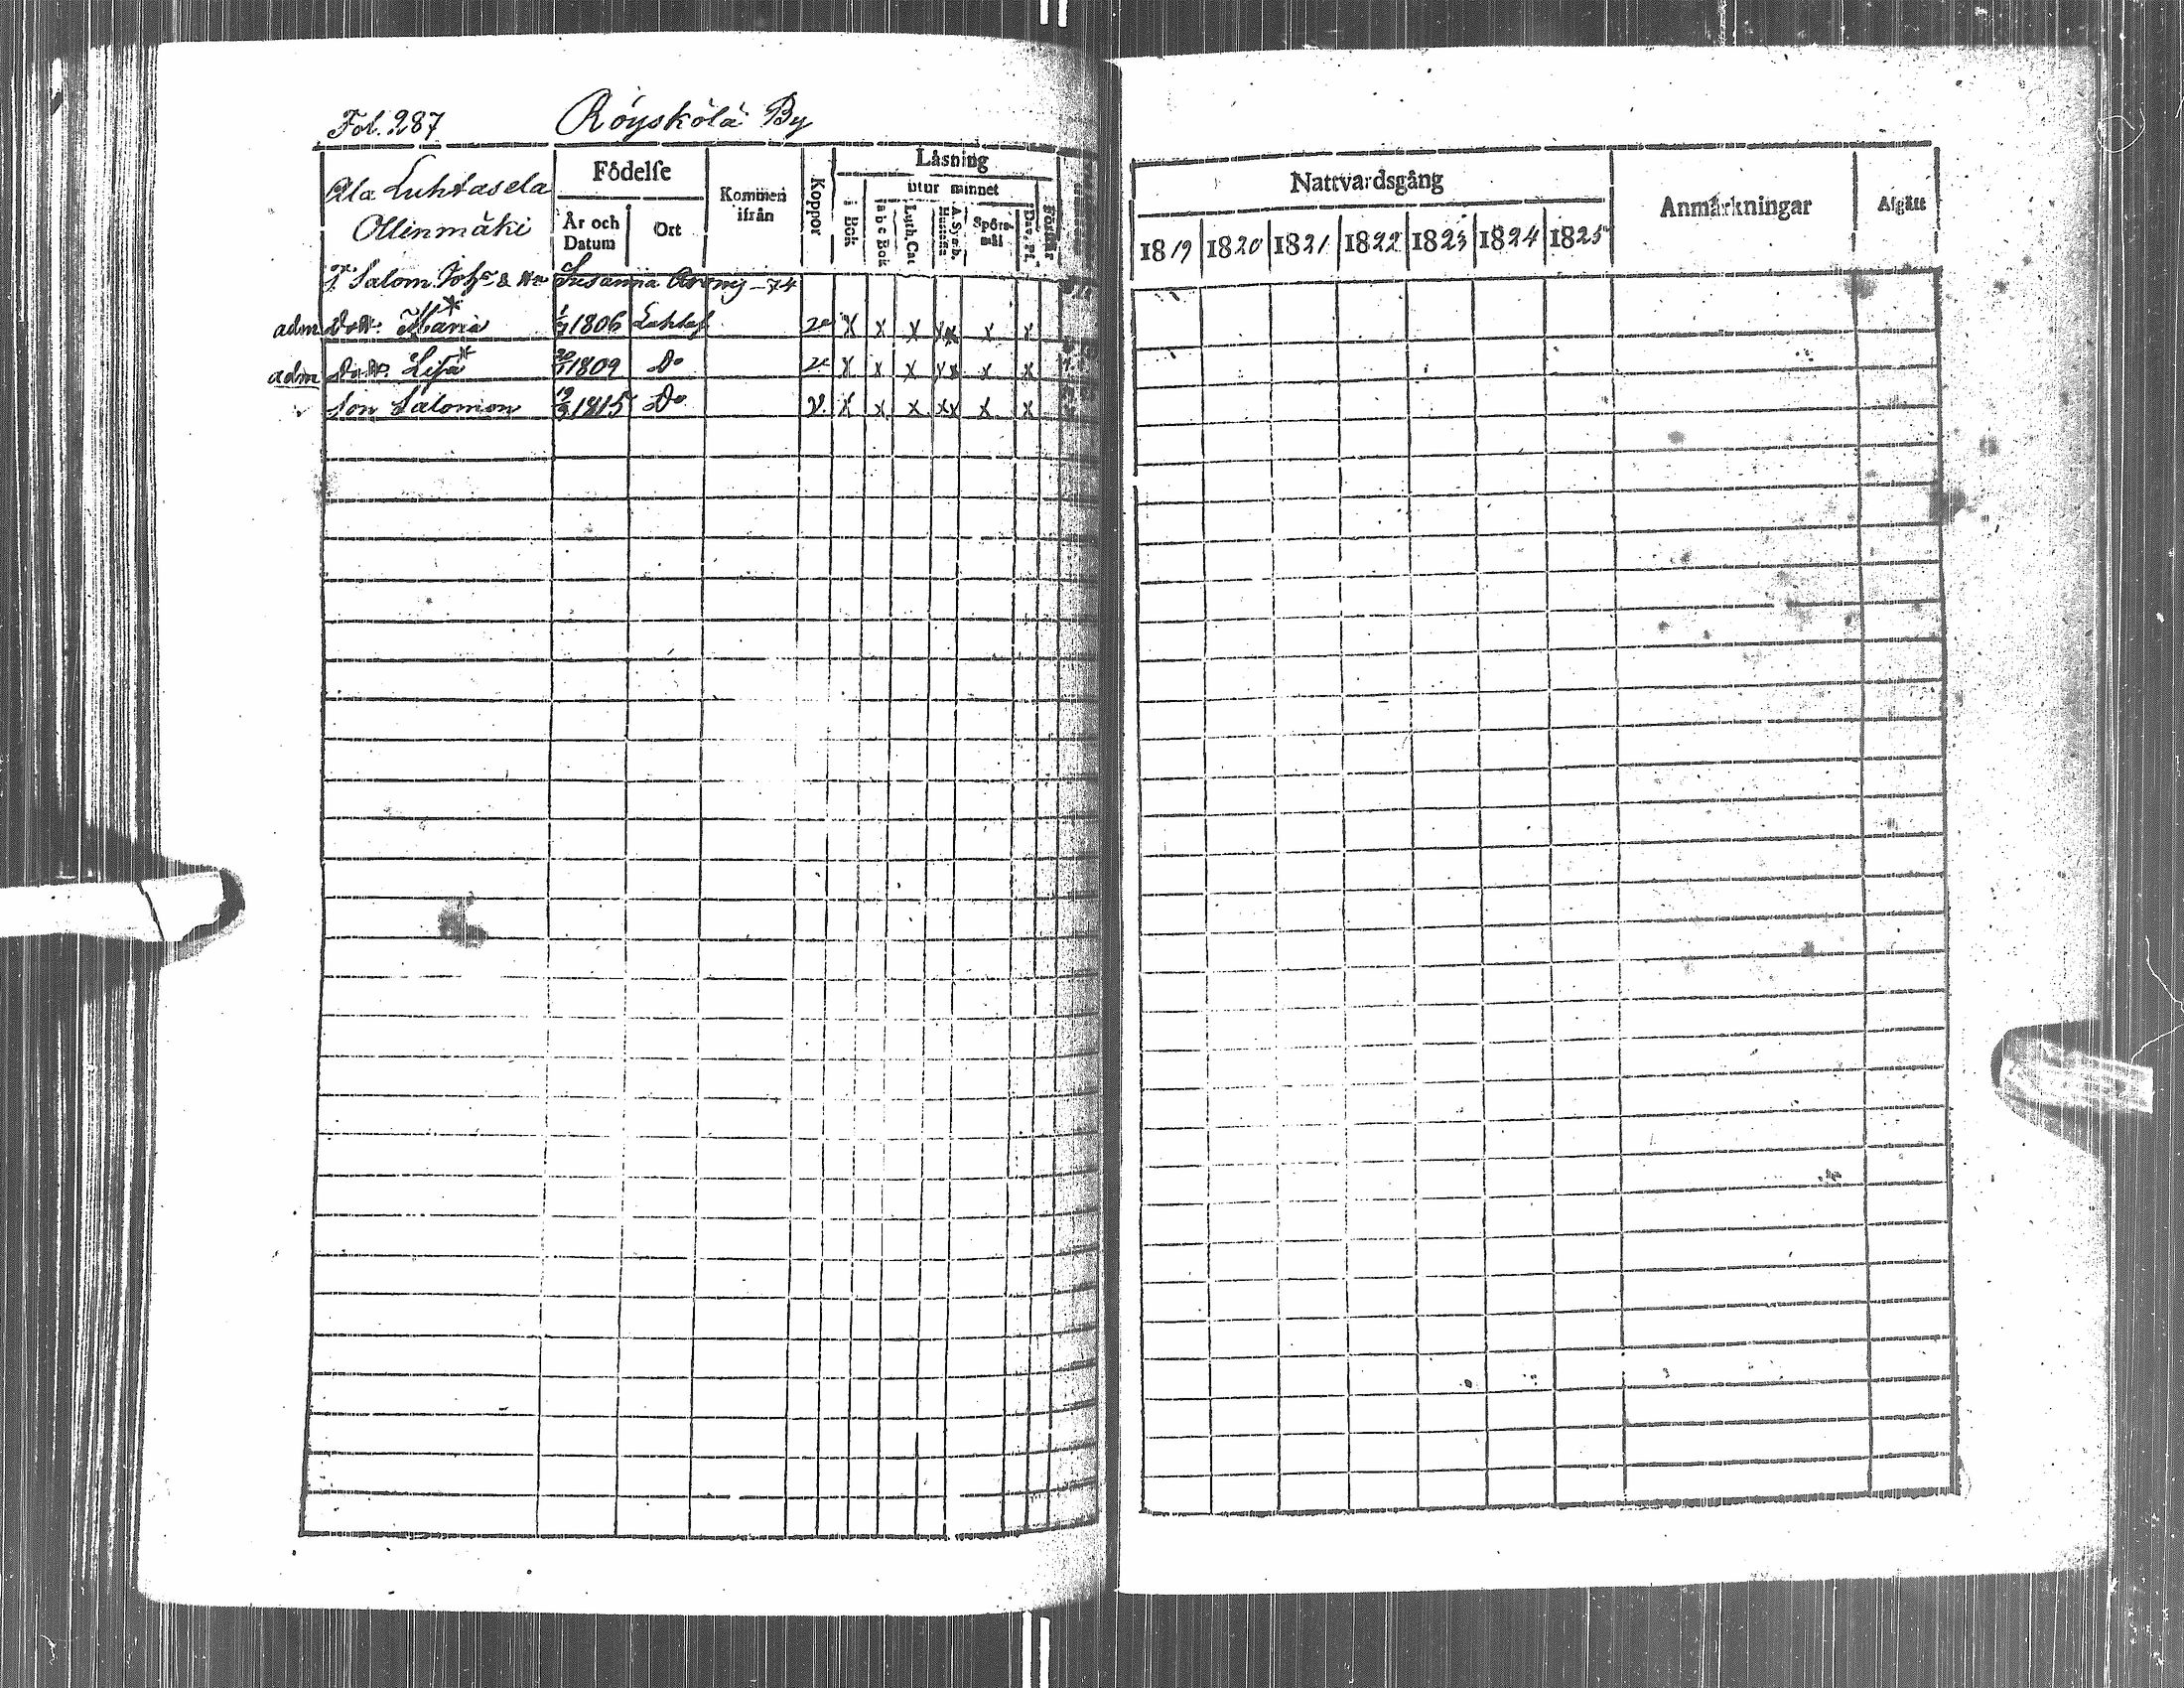 Fol. 287 Röyskölä By
Ala Luhtasela
Ollinmäki
Födelse
År och Datum
Ort
Kommen ifrån
Koppor
Läsning
i Bok
utur minnet
a b c Bok
Luth. Cat
A. Symb. Hustafla
Spörs-mål
Dav. Ps.
Förstår
Salom. Joh & Susanna -74
adm Dottr Maria * 1/7 1806 Luhtas v x x x xx x x
adm Dottr Lisa * 1809 Do v x x x xx x x
Son Salomon 19/9 1815 Do v x x x xx x x
Nattvardsgång
1819 1820 1821 1822 1823 1824 1825
Anmärkningar
Afgått